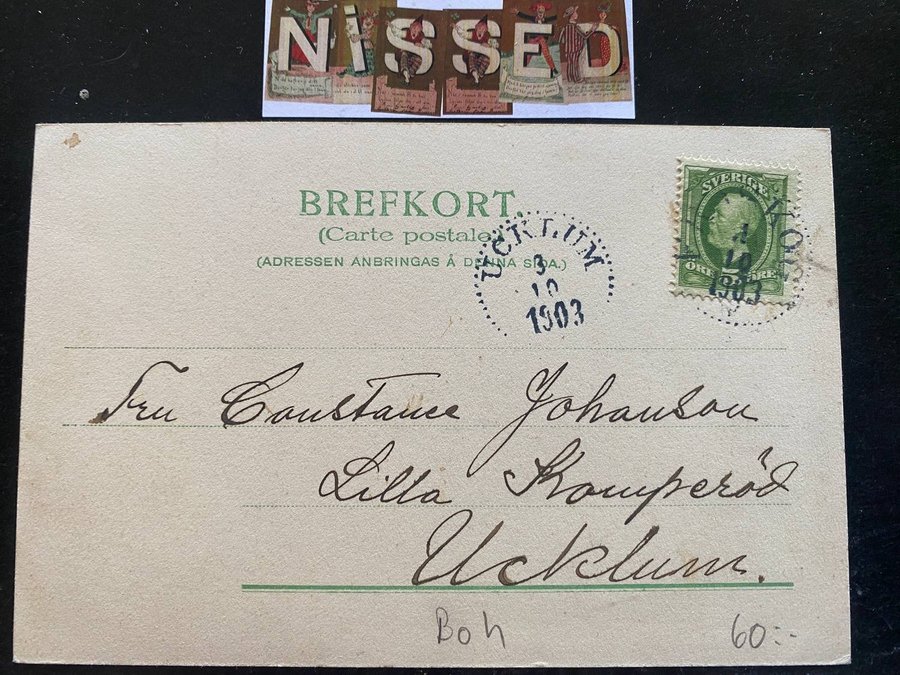 NISSED
BREFKORT.
(Carte postale)
(ADRESSEN ANBRINGAS Å DENNA SIDA.)
SVERIGE
ÖRE ÖRE
1903
UCKLUM
3
10
1903
Fru Constance Johanson
Lilla Komperöd
Ucklum.
Boh
60:-